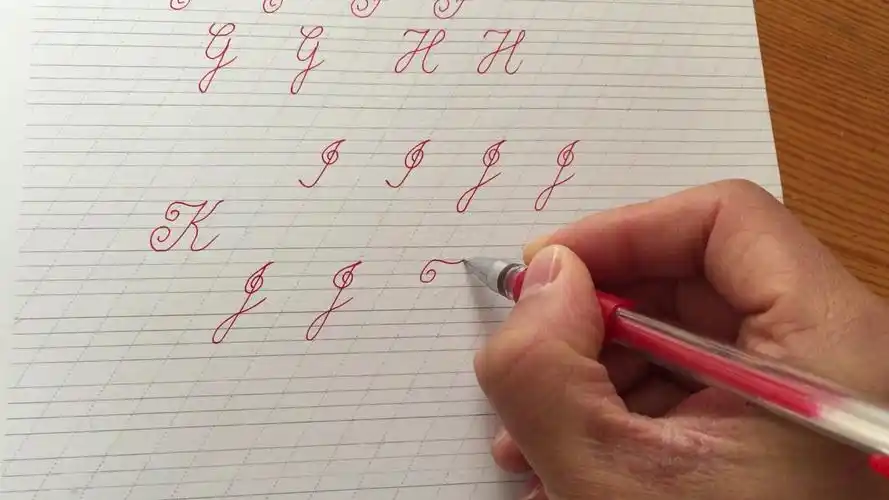 G G H H
I I J J
K
J J